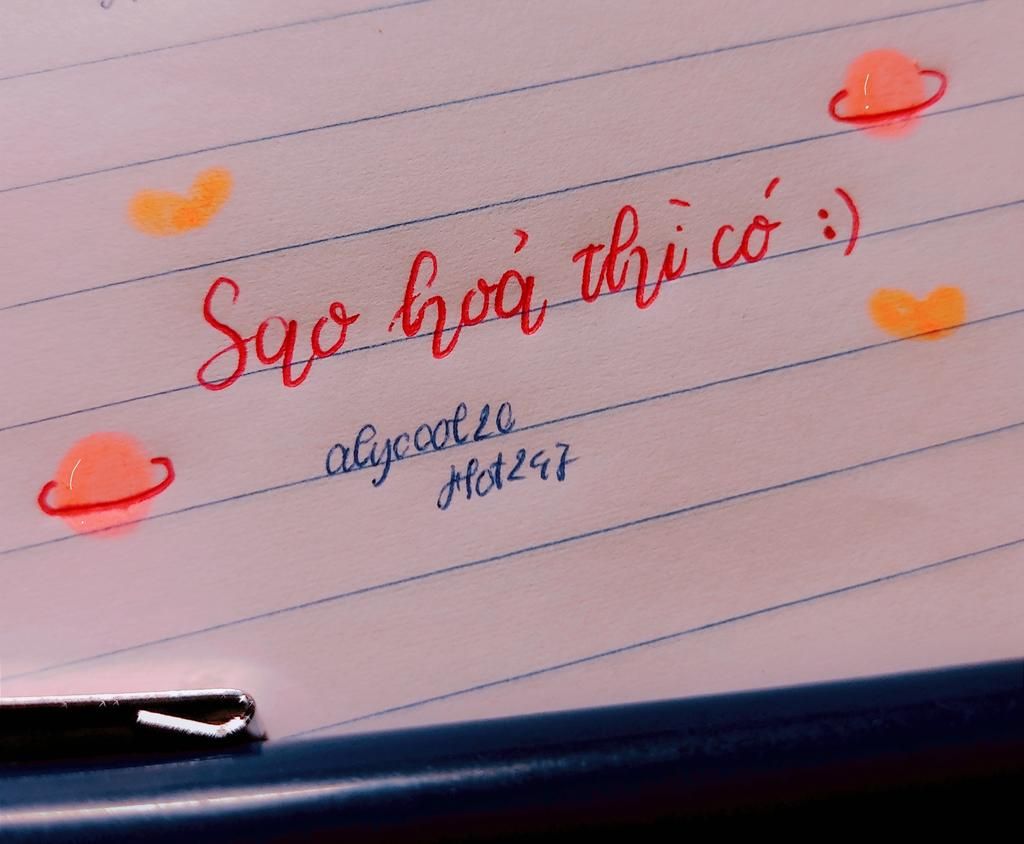 Sao hoả thì có :)
alycool20
Hot247